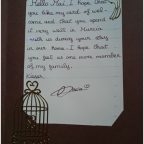 Hello Mai! I hope that
you like my card of wel-
come and that you spend
it very well in Murcia
with us during your stay
in our home. I hope that
you feel as one more member
of my family.
Kisses